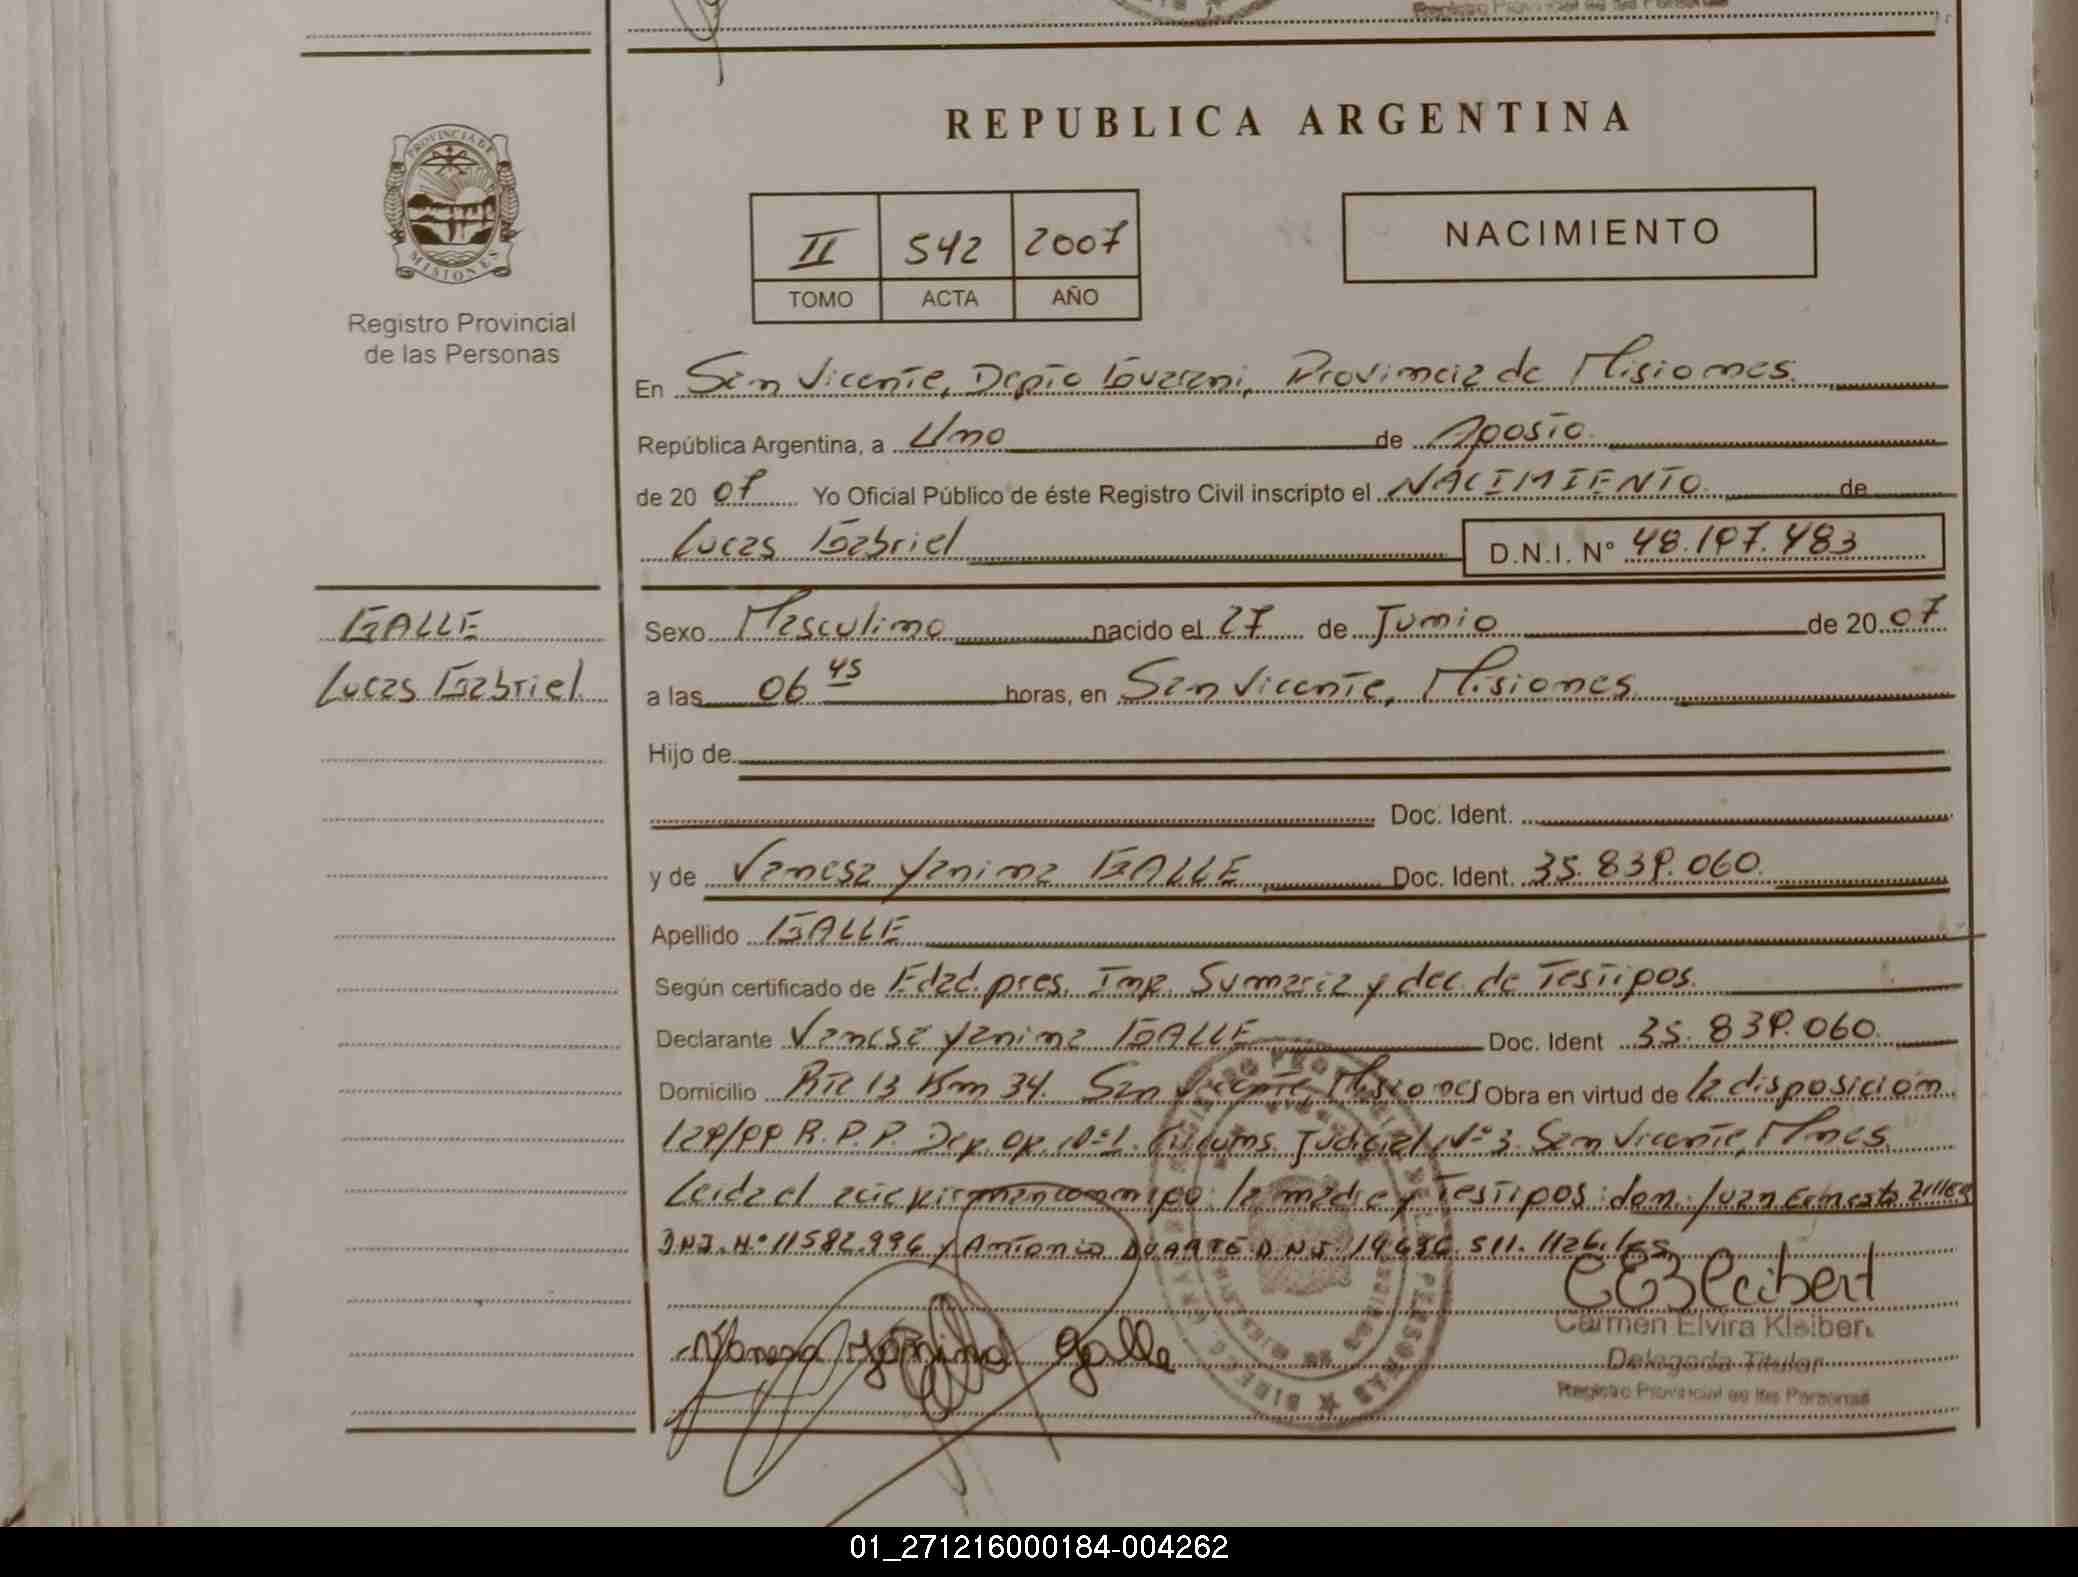 REPUBLICA ARGENTINA
PROVINCIA DE
MISIONES
Registro Provincial
de las Personas
II 542 2007
TOMO ACTA AÑO
NACIMIENTO
En San Vicente, Depto Guarani, Provincia de Misiones.
República Argentina, a Uno de Agosto
de 20 07 Yo Oficial Público de éste Registro Civil inscripto el NACIMIENTO de
Lucas Gabriel D.N.I. N° 48.197.483
GALLE
Lucas Gabriel
Sexo Masculino nacido el 27 de Junio de 20 07
a las 06 45 horas, en San Vicente, Misiones
Hijo de
Doc. Ident.
y de Vanesa Yanina GALLE Doc. Ident. 35.839.060
Apellido GALLE
Según certificado de Edad pres. Inf. Sumaria y dec. de Testigos.
Declarante Vanesa Yanina GALLE Doc. Ident 35.839.060
Domicilio Rte 13 Km 34. San Vicente, Misiones Obra en virtud de la disposición
129/99 R.P.P. Dep. Op. Nº1. Judicial Nº3. San Vicente, Mnes.
Leida el acta firman conmigo: la madre y Testigos: don: Juan Ernesto
D.N.I. Nº 11582.996 y Antonio DUARTE D.N.I. 14.636.511.
Vanesa Yanina Galle
CEKleibert
Carmen Elvira Kleibert
Delegada Titular
Registro Provincial de las Personas
01_271216000184-004262